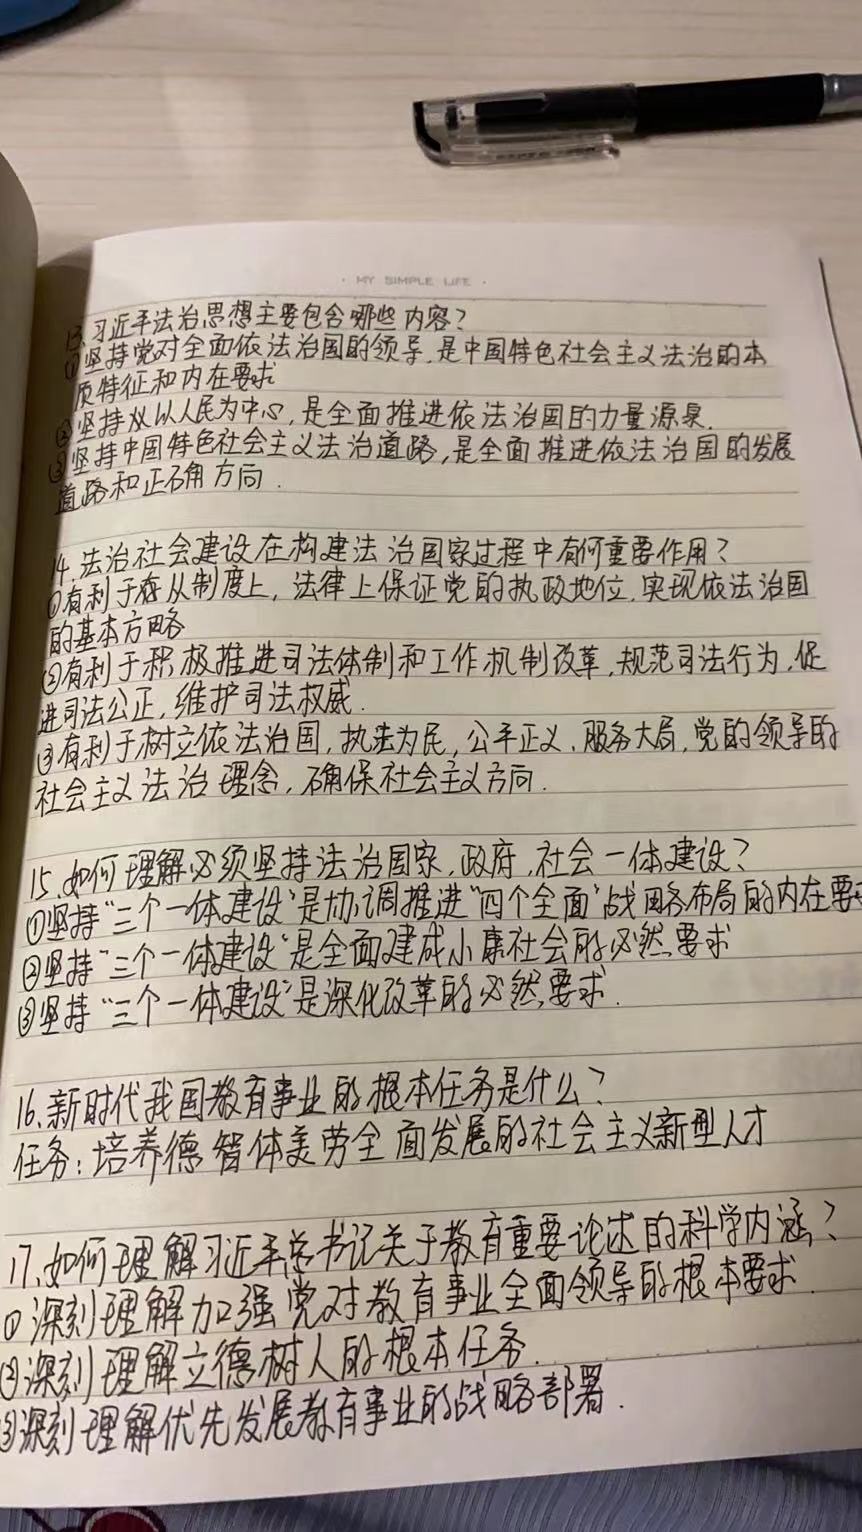 · MY SIMPLE LIFE ·
13、习近平法治思想主要包含哪些内容？
①坚持党对全面依法治国的领导，是中国特色社会主义法治的本
质特征和内在要求
②坚持以人民为中心，是全面推进依法治国的力量源泉．
③坚持中国特色社会主义法治道路，是全面推进依法治国的发展
道路和正确方向．
14、法治社会建设在构建法治国家过程中有何重要作用？
①有利于从制度上，法律上保证党的执政地位，实现依法治国
的基本方略
②有利于积极推进司法体制和工作机制改革，规范司法行为，促
进司法公正，维护司法权威．
③有利于树立依法治国，执法为民，公平正义、服务大局，党的领导的
社会主义法治理念，确保社会主义方向．
15、如何理解必须坚持法治国家，政府，社会一体建设？
①坚持“三个一体建设”是协调推进“四个全面”战略布局的内在要求
②坚持“三个一体建设”是全面建成小康社会的必然要求
③坚持“三个一体建设”是深化改革的必然要求．
16、新时代我国教育事业的根本任务是什么？
任务：培养德智体美劳全面发展的社会主义新型人才
17、如何理解习近平总书记关于教育重要论述的科学内涵？
①深刻理解加强党对教育事业全面领导的根本要求．
②深刻理解立德树人的根本任务．
③深刻理解优先发展教育事业的战略部署．